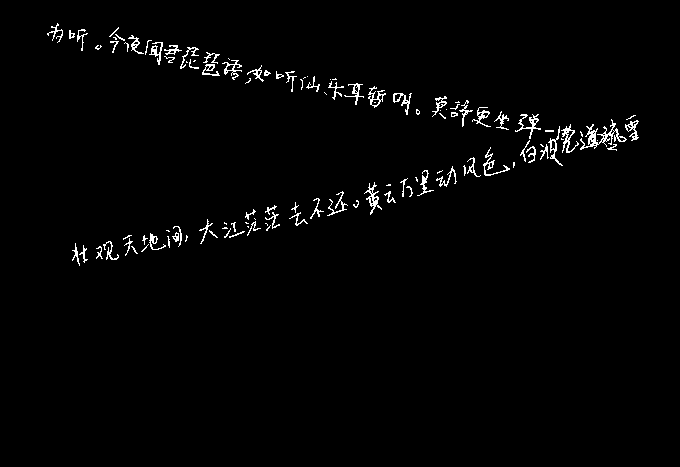 为听。今夜闻君琵琶语如听仙乐耳暂明。莫辞更坐弹一
壮观天地间,大江茫茫去不还。黄云万里动风色,白波九道流雪